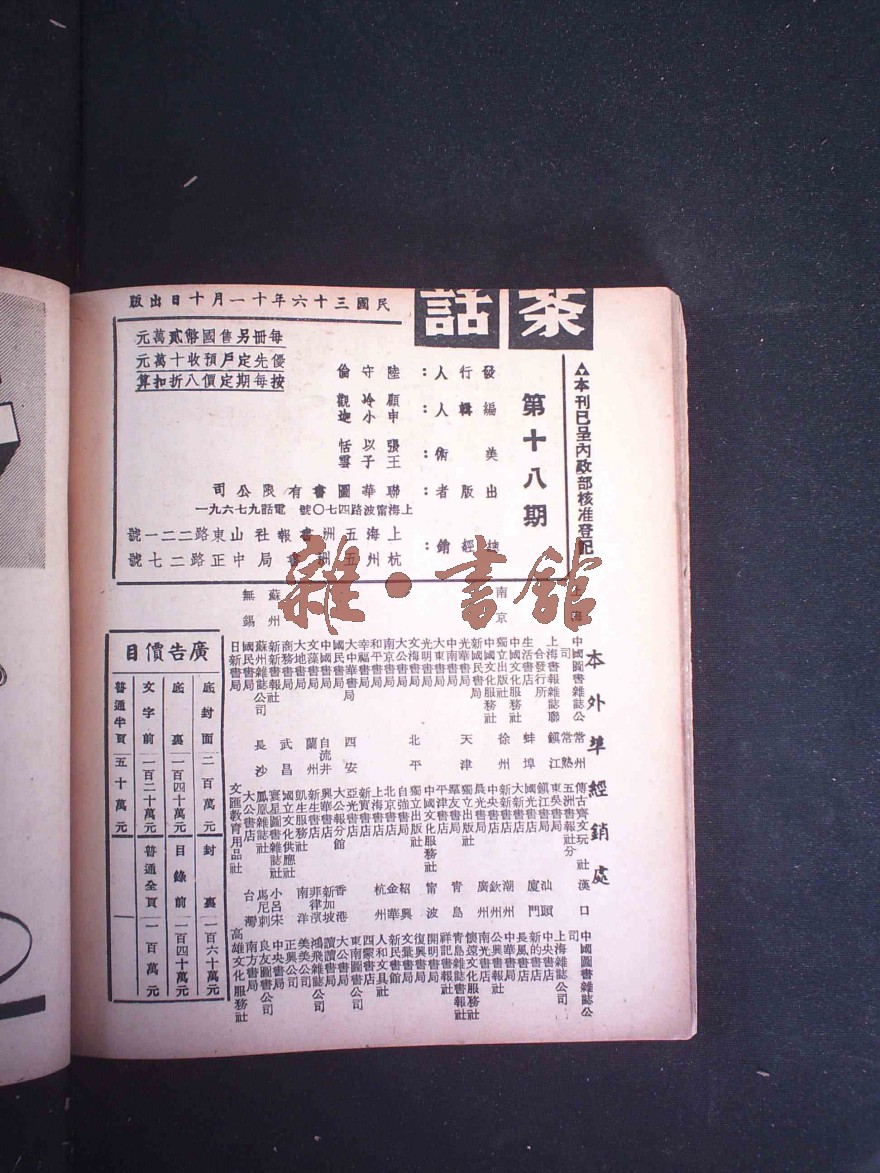 茶話
民國三十六年十一月十日出版
△本刊已呈內政部核准登記
第十八期
每冊另售國幣貳萬元
優先定戶預收十萬元
按每期定價八折扣算
發行人：陸守倫
編輯人：顧冷觀
申小迦
美術：張以恬
王子雲
出版者：聯華圖書有限公司
上海甯波路四七〇號 電話九七六九一
經銷：上海五洲書報社 山東路二二一號
杭州五洲書局 中正路二七號
本外埠經銷處
上海
中國圖書雜誌公司
上海書報雜誌聯合發行所
生活書店
中國文化服務社
獨立出版社
南京
中國文化服務社
新國民書局
光華書局
中南書局
大東書局
光明書局
文海書局
大公書局
和平書局
南京書局
幸福書局
大中華書局
國民書局
中國書局
文藻書局
大地書局
商務書局
蘇州
新新書報社
蘇州雜誌公司
無錫
國民書局
日新書局
常州
常熟
鎮江
蚌埠
徐州
天津
北平
西安
自流井
蘭州
武昌
長沙
傳古齋文玩社
五洲書報社分
東吳書局
鎮江書局
國光書店
大新書店
新新書店
中央書店
晨光書局
獨立出版社
羣友書局
平津書店
中國文化服務社
獨立出版社
自強書局
北京書店
上海書店
新實書店
亞光書店
大公報分館
興華書店
新生書店
凱生服務社
國立文化供應社
寰星圖書雜誌社
鳳凰雜誌社
大公書店
文匯教育用品社
漢口
汕頭
廈門
潮州
欽州
廣州
青島
甯波
紹興
金華
杭州
香港
新加坡
菲律濱
南洋
小呂宋
馬尼剌
台灣
中國圖書雜誌公司
上海雜誌公司
中央書店
新的書店
長風書店
中華書局
公興書報社
南光書店
懷遠文化服務社
青島雜誌書報社
祥記書報社
開明書局
復興書局
文叢書局
新民書館
人和文具社
四蒙書店
東南圖書公司
大公書局
讀讀書局
鴻飛雜誌公司
美美公司
正興公司
中央書局
良友圖書公司
南方書局
高雄文化服務社
廣告價目
底封面 二百萬元
封裏 一百六十萬元
底裏 一百四十萬元
目錄前 一百四十萬元
文字前 一百二十萬元
普通全頁 一百萬元
普通半頁 五十萬元
雜·書館